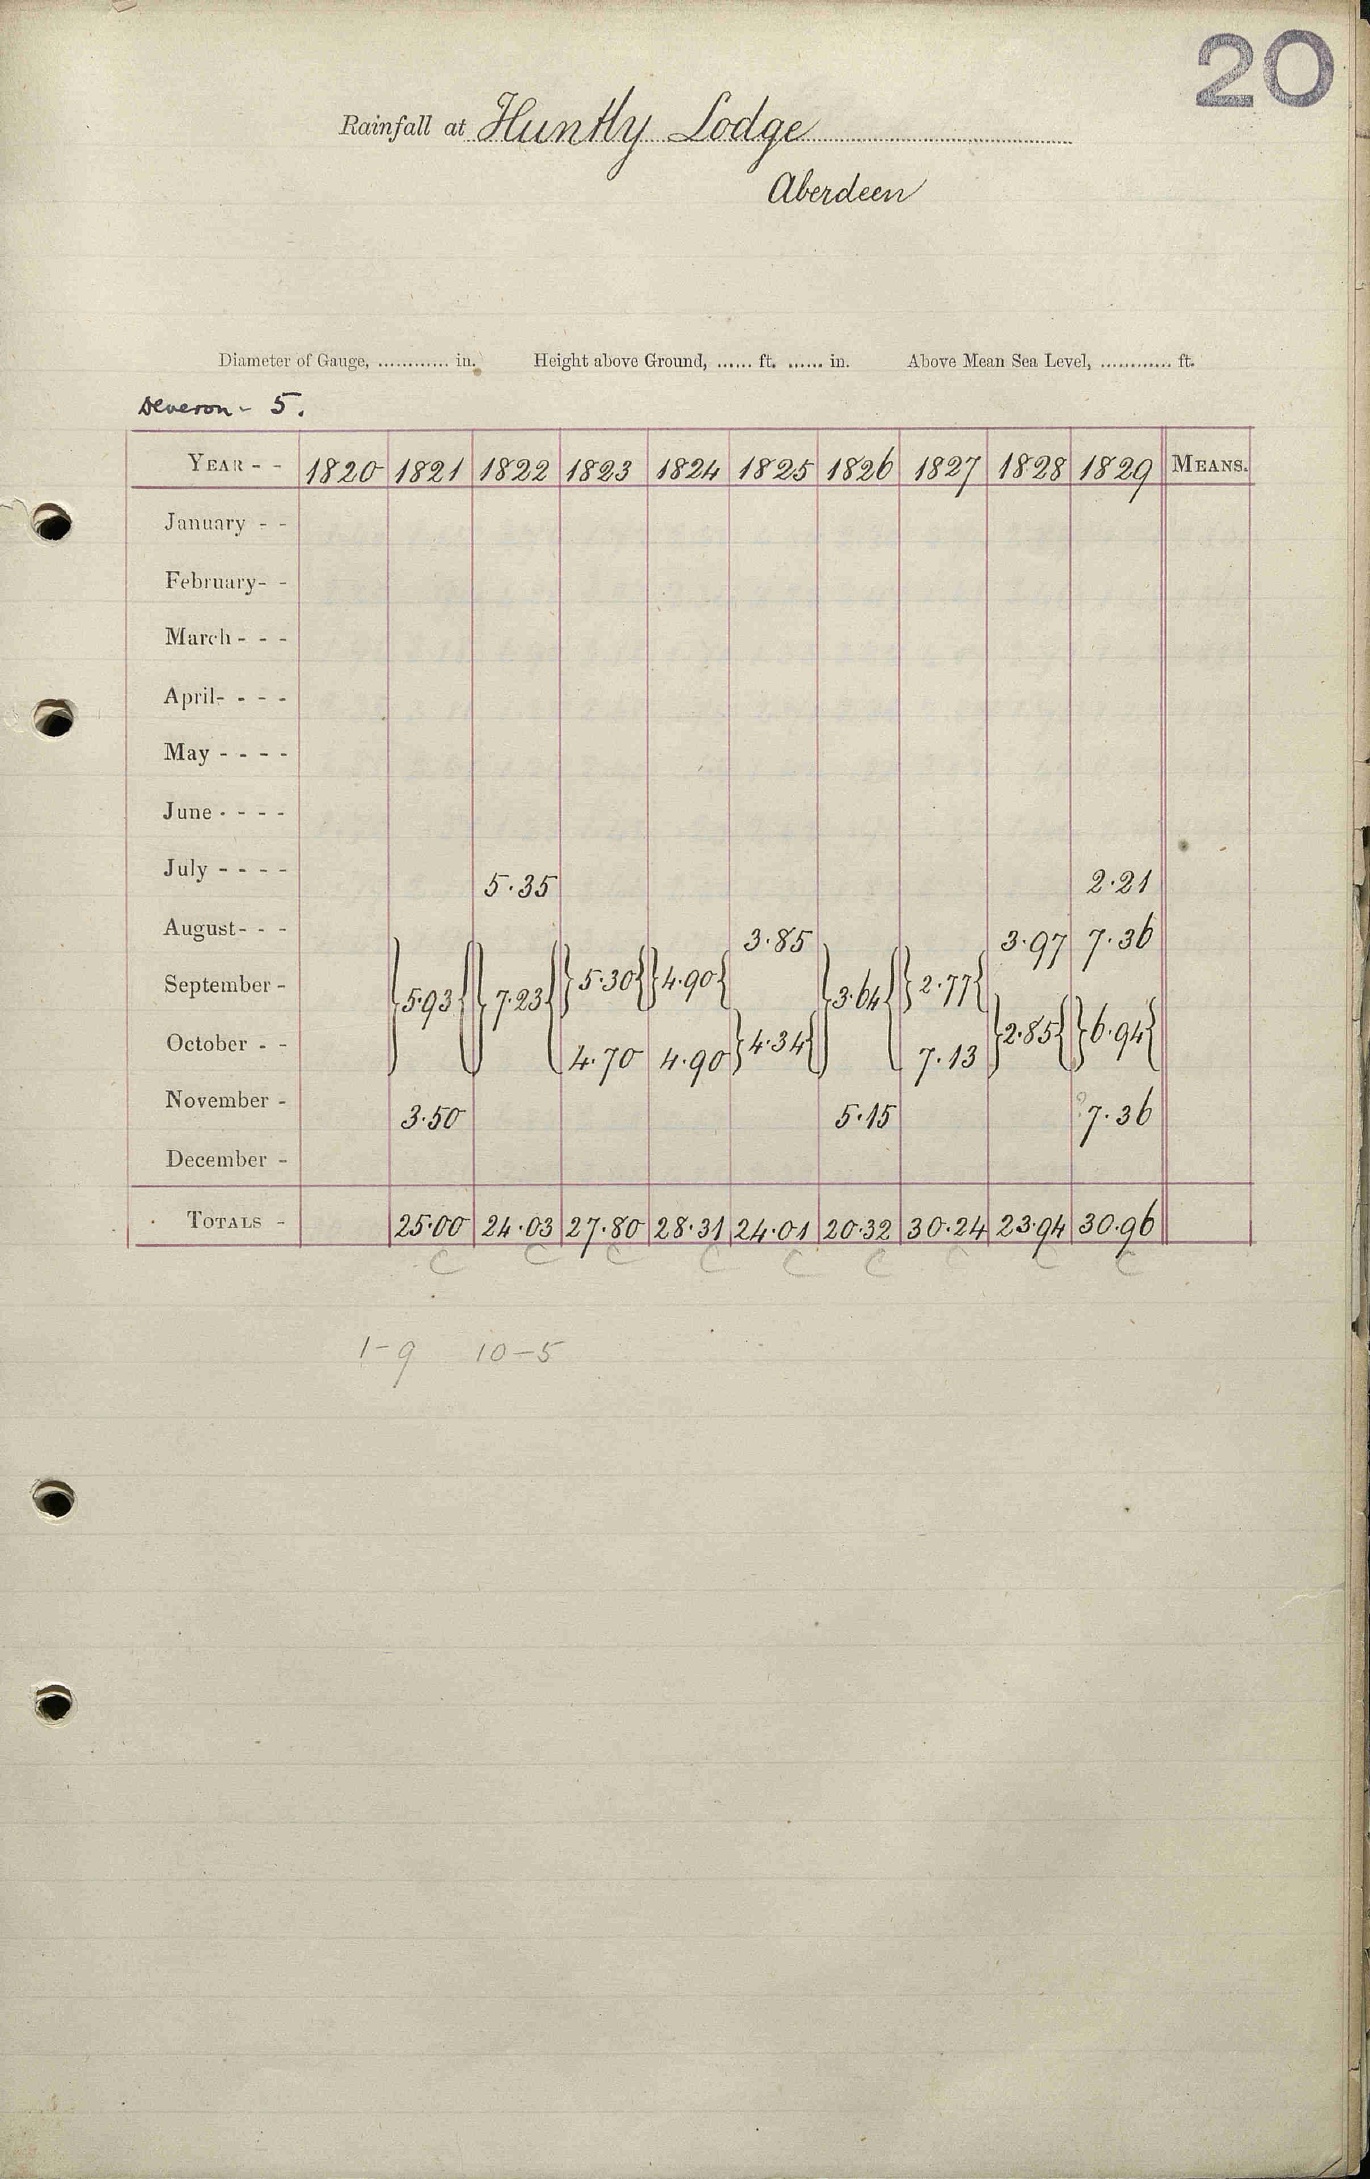 20
Rainfall at Huntly Lodge
Aberdeen
Diameter of Gauge, ............ in. Height above Ground, ...... ft. ...... in. Above Mean Sea Level, ............ ft.
Deveron - 5.
YEAR - - 1820 1821 1822 1823 1824 1825 1826 1827 1828 1829 MEANS.
January - -
February - -
March - - -
April - - - -
May - - - -
June - - - -
July - - - - 5.35 2.21
August - - - 3.85 3.97 7.36
September - } 5.93 { } 7.23 { } 5.30 { } 4.90 { } 3.64 { } 2.77 {
October - - 4.70 4.90 } 4.34 { 7.13 } 2.85 { } 6.94 {
November - 3.50 5.15 ? 7.36
December -
TOTALS - 25.00 24.03 27.80 28.31 24.01 20.32 30.24 23.94 30.96
C C C C C C C C C
1-9 10-5